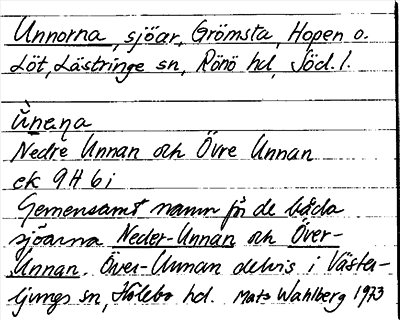 Unnorna, sjöar, Grömsta, Hopen o.
Löt, Lästringe sn, Rönö hd, Söd. l.
ùnaṇa
Nedre Unnan och Övre Unnan
ek 9H 6i
Gemensamt namn på de båda
sjöarna Neder-Unnan och Över-
Unnan. Över-Unnan delvis i Väster-
ljungs sn, Hölebo hd. Mats Wahlberg 1973